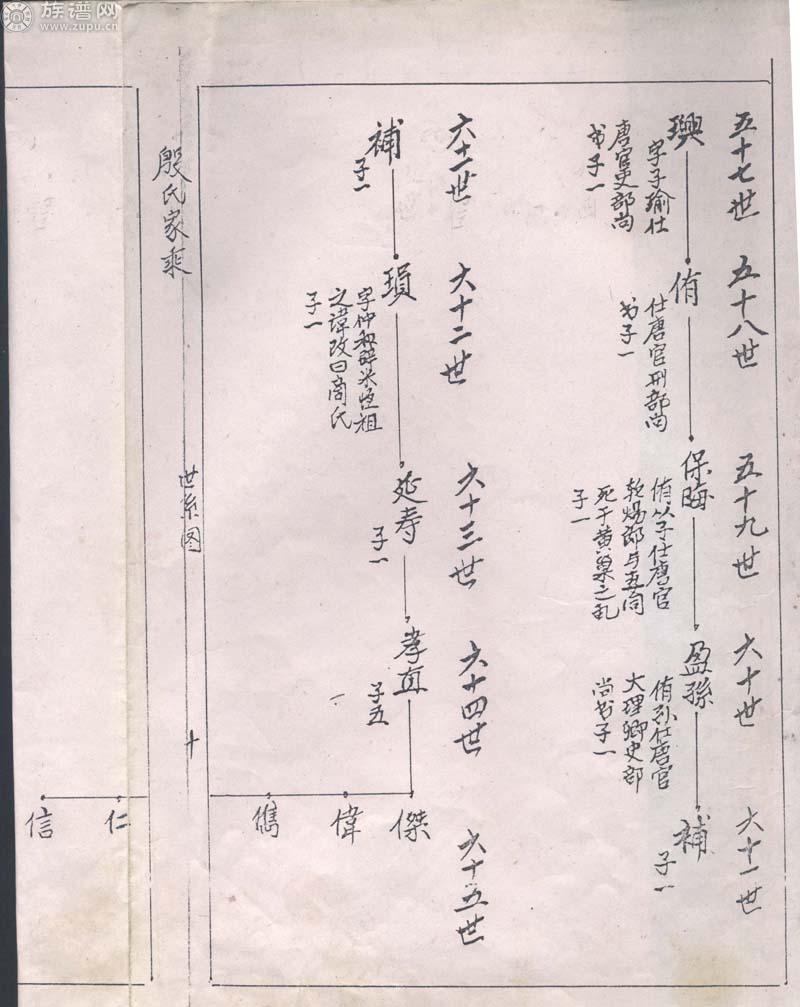 族谱网
www.zupu.cn
五十七世
五十八世
五十九世
六十世
六十一世
璵
字子瑜仕
唐官吏部尚
书子一
侑
仕唐官刑部尚
书子一
保晦
侑从子仕唐官
死于黄巢之乱
子一
盈孫
侑孙仕唐官
大理卿史部
尚书子一
補
子一
六十一世
六十二世
六十三世
六十四世
六十五世
補
子一
瑣
之諱改曰商氏
子一
延寿
子一
孝直
子五
傑
偉
儁
殷氏家乘
世系图
十
仁
信